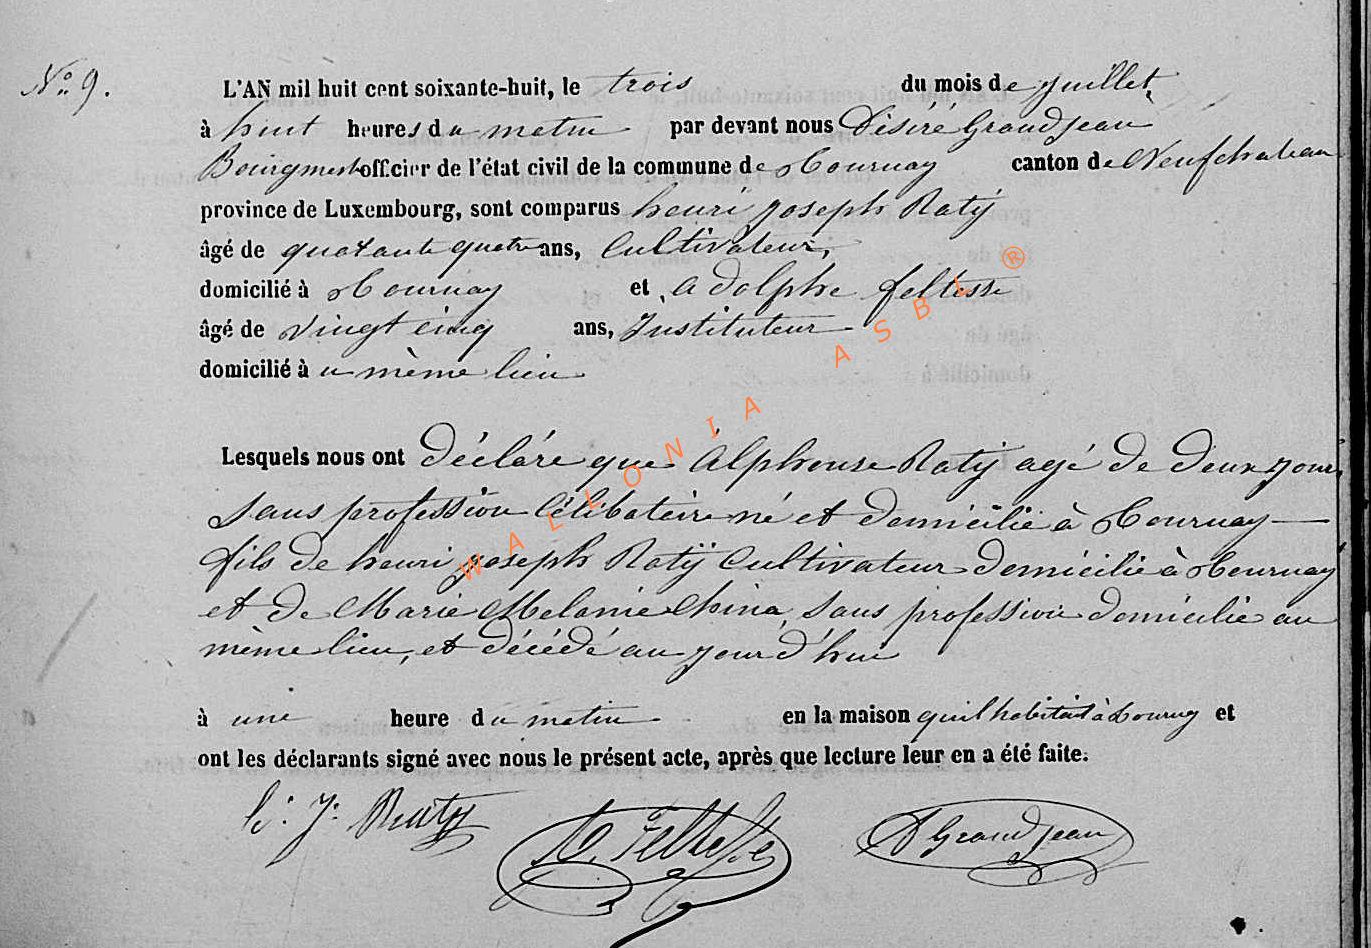 N° 9.
L'AN mil huit cent soixante-huit, le trois du mois de juillet,
à huit heures du matin par devant nous Désiré Grandjean
Bourgmest officier de l'état civil de la commune de Tournay canton de Neufchateau
province de Luxembourg, sont comparus henri joseph Raty
âgé de quarante quatre ans, Cultivateur,
domicilié à Tournay et Adolphe feltesse
âgé de vingt cinq ans, Instituteur
domicilié au mème lieu
Lesquels nous ont déclaré que Alphonse Raty agé de deux jours
sans profession Célibataire né et domicilié à Tournay —
fils de henri joseph Raty Cultivateur domicilié à Tournay
et de Marie Melanie China, sans profession domicilié au
mème lieu, et décédé aujourd'hui
à une heure du matin en la maison qu'il habitait à Tournay et
ont les déclarants signé avec nous le présent acte, après que lecture leur en a été faite.
h. J. Raty A. Feltesse D Grandjean
WALLONIA ASBL ®